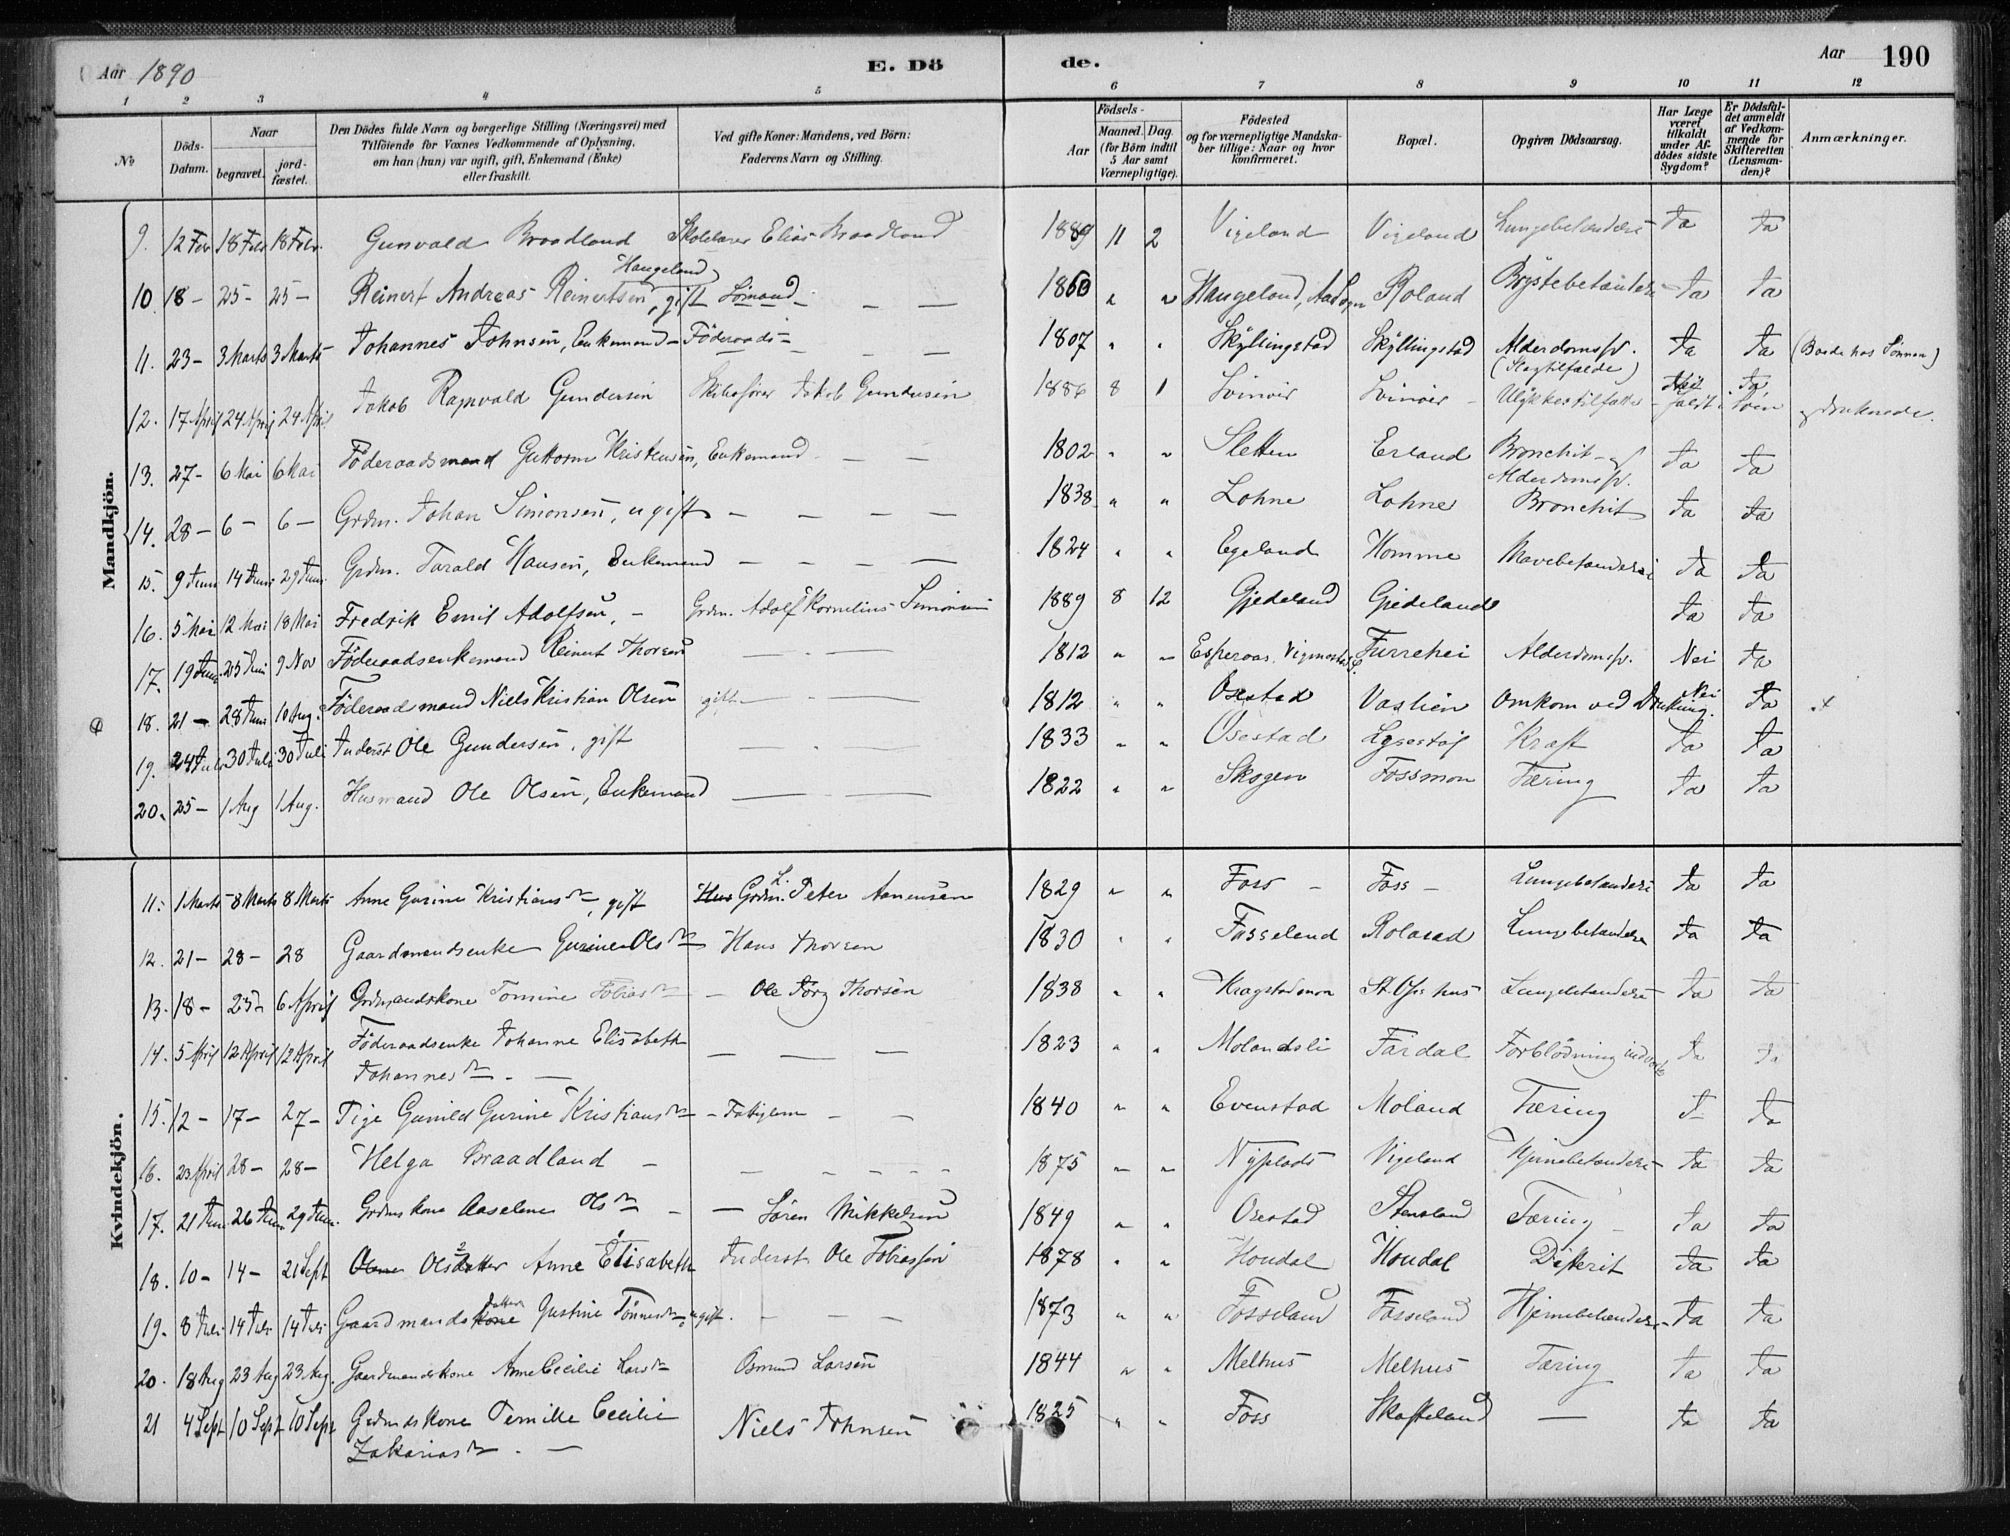 Aar 1890 E. Dö de. Aar 190
1 2 3 4 5 6 7 8 9 10 11 12
No Döds-Datum. Naar begravet. jordfæstet. Den Dödes fulde Navn og borgerlige Stilling (Næringsvei) med Tilföiende for Voxnes Vedkommende af Oplysning, om han (hun) var ugift, gift, Enkemand (Enke) eller fraskilt. Ved gifte Koner: Mandens, ved Börn: Faderens Navn og Stilling. Födsels- Aar Maaned. Dag. (for Börn indtil 5 Aar samt Værnepligtige). Födested og for værnepligtige Mandskaber tillige: Naar og hvor konfirmeret. Bopæl. Opgiven Dödsaarsag. Har Læge været tilkaldt under Afdödes sidste Sygdom? Er Dödsfaldet anmeldt af Vedkommende for Skifteretten (Lensmanden)? Anmærkninger.
Mandkjön.
9. 12 Febr 18 Febr 18 Febr. Gunvald Braadland Skolelærer Elias Braadland 1889 11 2 Vigeland Vigeland Lungebetændelse Ja Ja
10. 18 - 25 - 25 - Reinert Andreas Reinertsen Haugeland, gift Sömand 1860 " " Haugeland, Aa Sogn Roland Brystebetændelse Ja Ja
11. 23 - 3 Marts 3 Marts Johannes Johnsen, Enkemand - Föderaads - 1807 " " Skyllingstad Skyllingstad Alderdomssv. (Slagtilfælde) Ja Ja (Boede hos Sönnen)
12. 17 April 24 April 24 April Jakob Ragnvald Gundersen Skibsförer Jakob Gundersen 1886 8 1 Svinöer Svinöer - Ulykkestilfælde - Nei faldt i Ja Söen og druknede.
13. 27 - 6 Mai 6 Mai Föderaadsmand Guttorm Kristensen, Enkemand 1802 " " Sletten Erland Bronchit og Alderdomssv. Ja Ja
14. 28 - 6 - 6 - Grdm. Johan Simonsen, ugift 1838 " " Lohne Lohne Bronchit Ja Ja
15. 9 Juni 14 Juni 29 Juni Grdm. Tarald Hansen, Enkemand 1824 " " Egeland Homme Mavebetændelse Ja Ja
16. 5 Mai 12 Mai 18 Mai Fredrik Emil Adolfsen, - Grdm. Adolf Kornelius Simonsen 1889 8 12 Gjedeland Gjedeland Ja Ja
17. 19 Juni 25 Juni 9 Nov Föderaadsenkemand Reinert Thorsen 1812 " " Esperaas, Vigmostad Furrehei Alderdomssv. Nei Ja
18. 21 - 28 Juni 10 Aug. Föderaadsmand Niels Kristian Olsen gift 1812 " " Osestad Vaslien Omkom ved Drukning. Nei Ja
19. 24 Juli 30 Juli 30 Juli Inderst Ole Gundersen, gift 1833 " " Osestad Kræft Ja Ja
20. 25 - 1 Aug 1 Aug. Husmand Ole Olsen, Enkemand 1822 " " Skogen Fossmon Tæring Ja Ja
Kvindekjön.
11. 1 Marts 8 Marts 8 Marts Anne Gurine Kristiansdr, gift Grdm. L. Peter Aanensen 1829 " " Foss - Foss - Lungebetændelse Ja Ja
12. 21 - 28 - 28 Gaardmandsenke Gurine Olsdr Hans Thorsen 1830 " " Fosseland Roland Lungebetændelse Ja Ja
13. 18 - 25 - 6 April Grdmandskone Tomine Tobiasdr - Ole Jörg Thorsen 1838 " " Kragstadmon Lungebetændelse Ja Ja
14. 5 April 12 April 12 April Föderaadsenke Johanne Elisabeth 1823 " " Molandsli Fardal Forblödning indvortes Ja Ja
Johannesdr -
15. 12 - 17 - 27 - Pige Gunild Gurine Kristiansdr - Fattiglem 1840 " " Evenstad Moland Tæring Ja Ja
16. 23 April 28 - 28 - Helga Braadland - 1875 " " Nyplads Vigeland Hjernebetændelse Ja Ja
17. 21 Juni 26 Juni 29 Juni. Grdmskone Aaselene Olsdr - Sören Mikkelsen 1849 " " Osestad Stensland Tæring - Ja Ja
18. 10 - 14 - 21 Sept Olsdatter Anne Elisabeth Inderst Ole Tobiassen 1878 " " Houdal Houdal Difterit Ja Ja
19. 8 Juli 14 Juli 14 Juli Gaardmandsdatter Gustine Tönnesdr, ugift. 1873 " " Fosseland Fosseland Hjernebetændelse Ja Ja
20. 18 Aug 23 Aug 23 Aug. Gaardmandskone Anne Cecilie Larsdr Osmund Larsen 1844 " " Melhus Melhus Tæring Ja Ja
21 4 Sept 10 Sept 10 Sept Grdmdskone Pernille Cecilie Niels Johnsen 1825 " " Foss Skofteland — Ja Ja
Zakariasdr - —